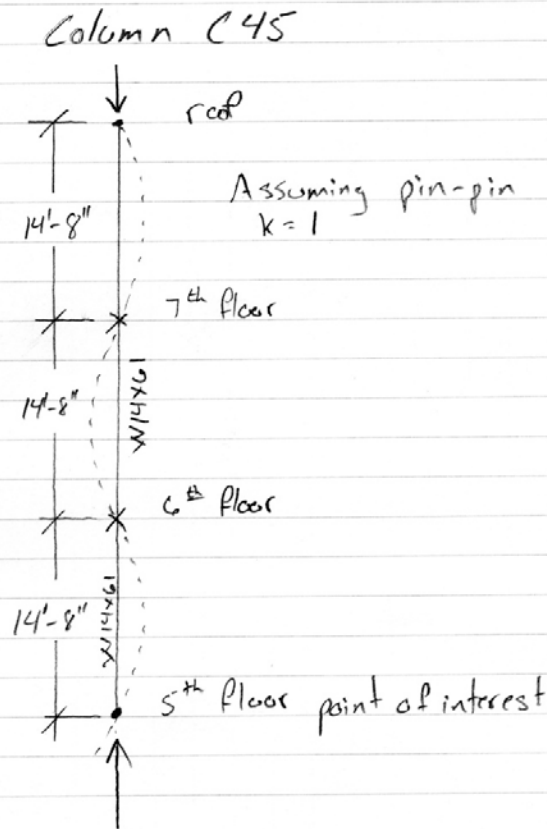 Column C45
roof
Assuming pin-pin
k = 1
14'-8"
7th floor
14'-8"
W14x61
6th floor
W14x61
14'-8"
5th floor point of interest